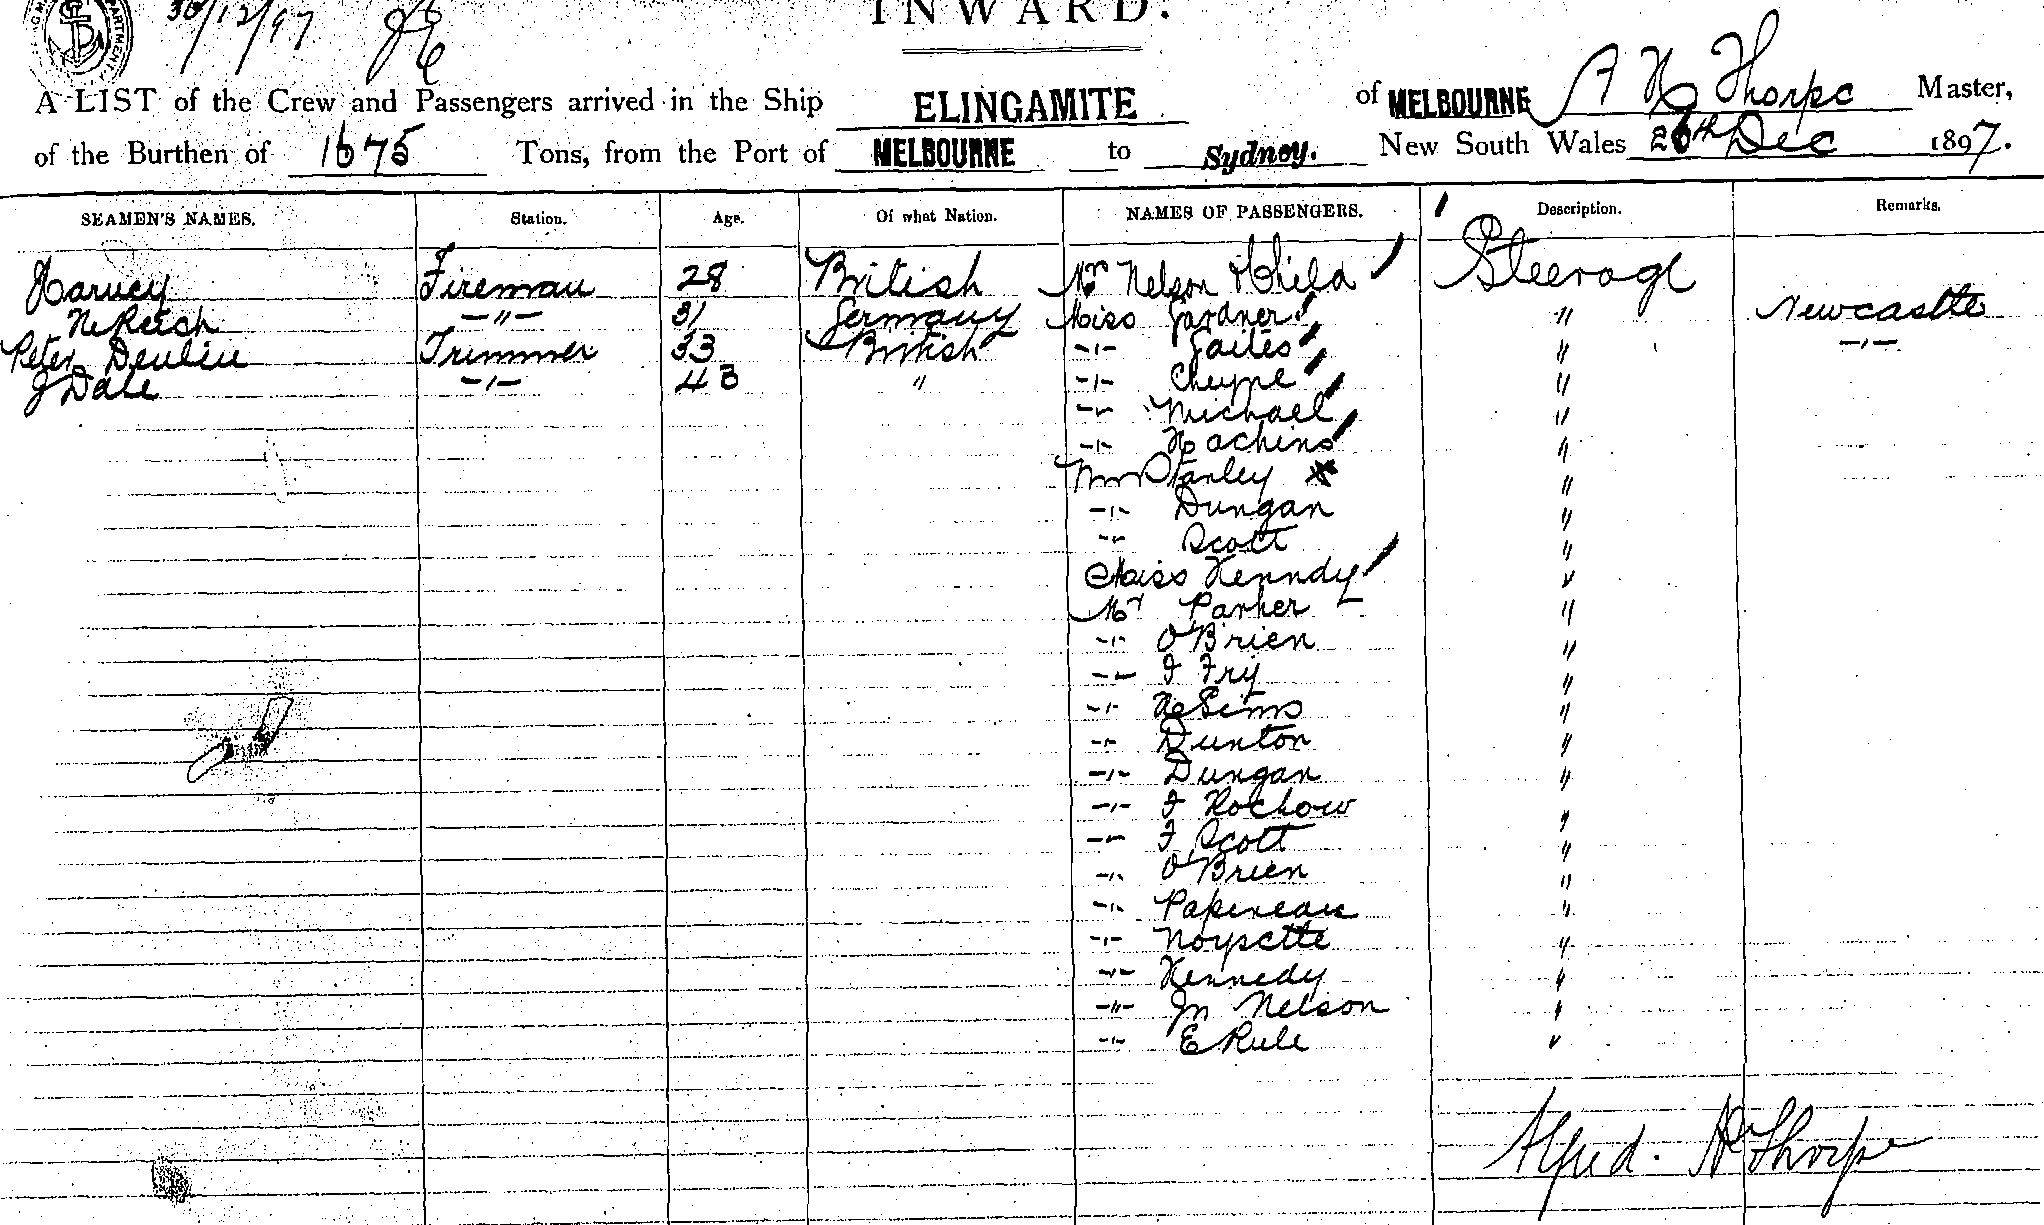 30/12/97
INWARD.
A LIST of the Crew and Passengers arrived in the Ship ELINGAMITE of MELBOURNE A H Thorpe Master,
of the Burthen of 1675 Tons, from the Port of MELBOURNE to Sydney. New South Wales 26th Dec 1897.
SEAMEN'S NAMES. Station. Age. Of what Nation. NAMES OF PASSENGERS. Description. Remarks.
Harvey Fireman 28 British Nelson & Child Steerage
Reich -"- 31 Germany Miss Gardner " Newcastle
Peter Devlin Trimmer 33 British -"- " -"-
J Dale -"- 43 " -"- Cheyne "
-"- Michael "
-"- Hachins "
Stanley "
-"- Dungan "
-"- Scott "
Miss Kenndy "
Mr Parker "
-"- O'Brien "
-"- F Fry "
-"- H Sims "
-"- Dunton "
-"- Dungan "
-"- F Rochow "
-"- F Scott "
-"- O'Brien "
-"- Papineau "
-"- "
-"- Kennedy "
-"- Jn Nelson "
-"- E Rule "
Alfred. H Thorpe